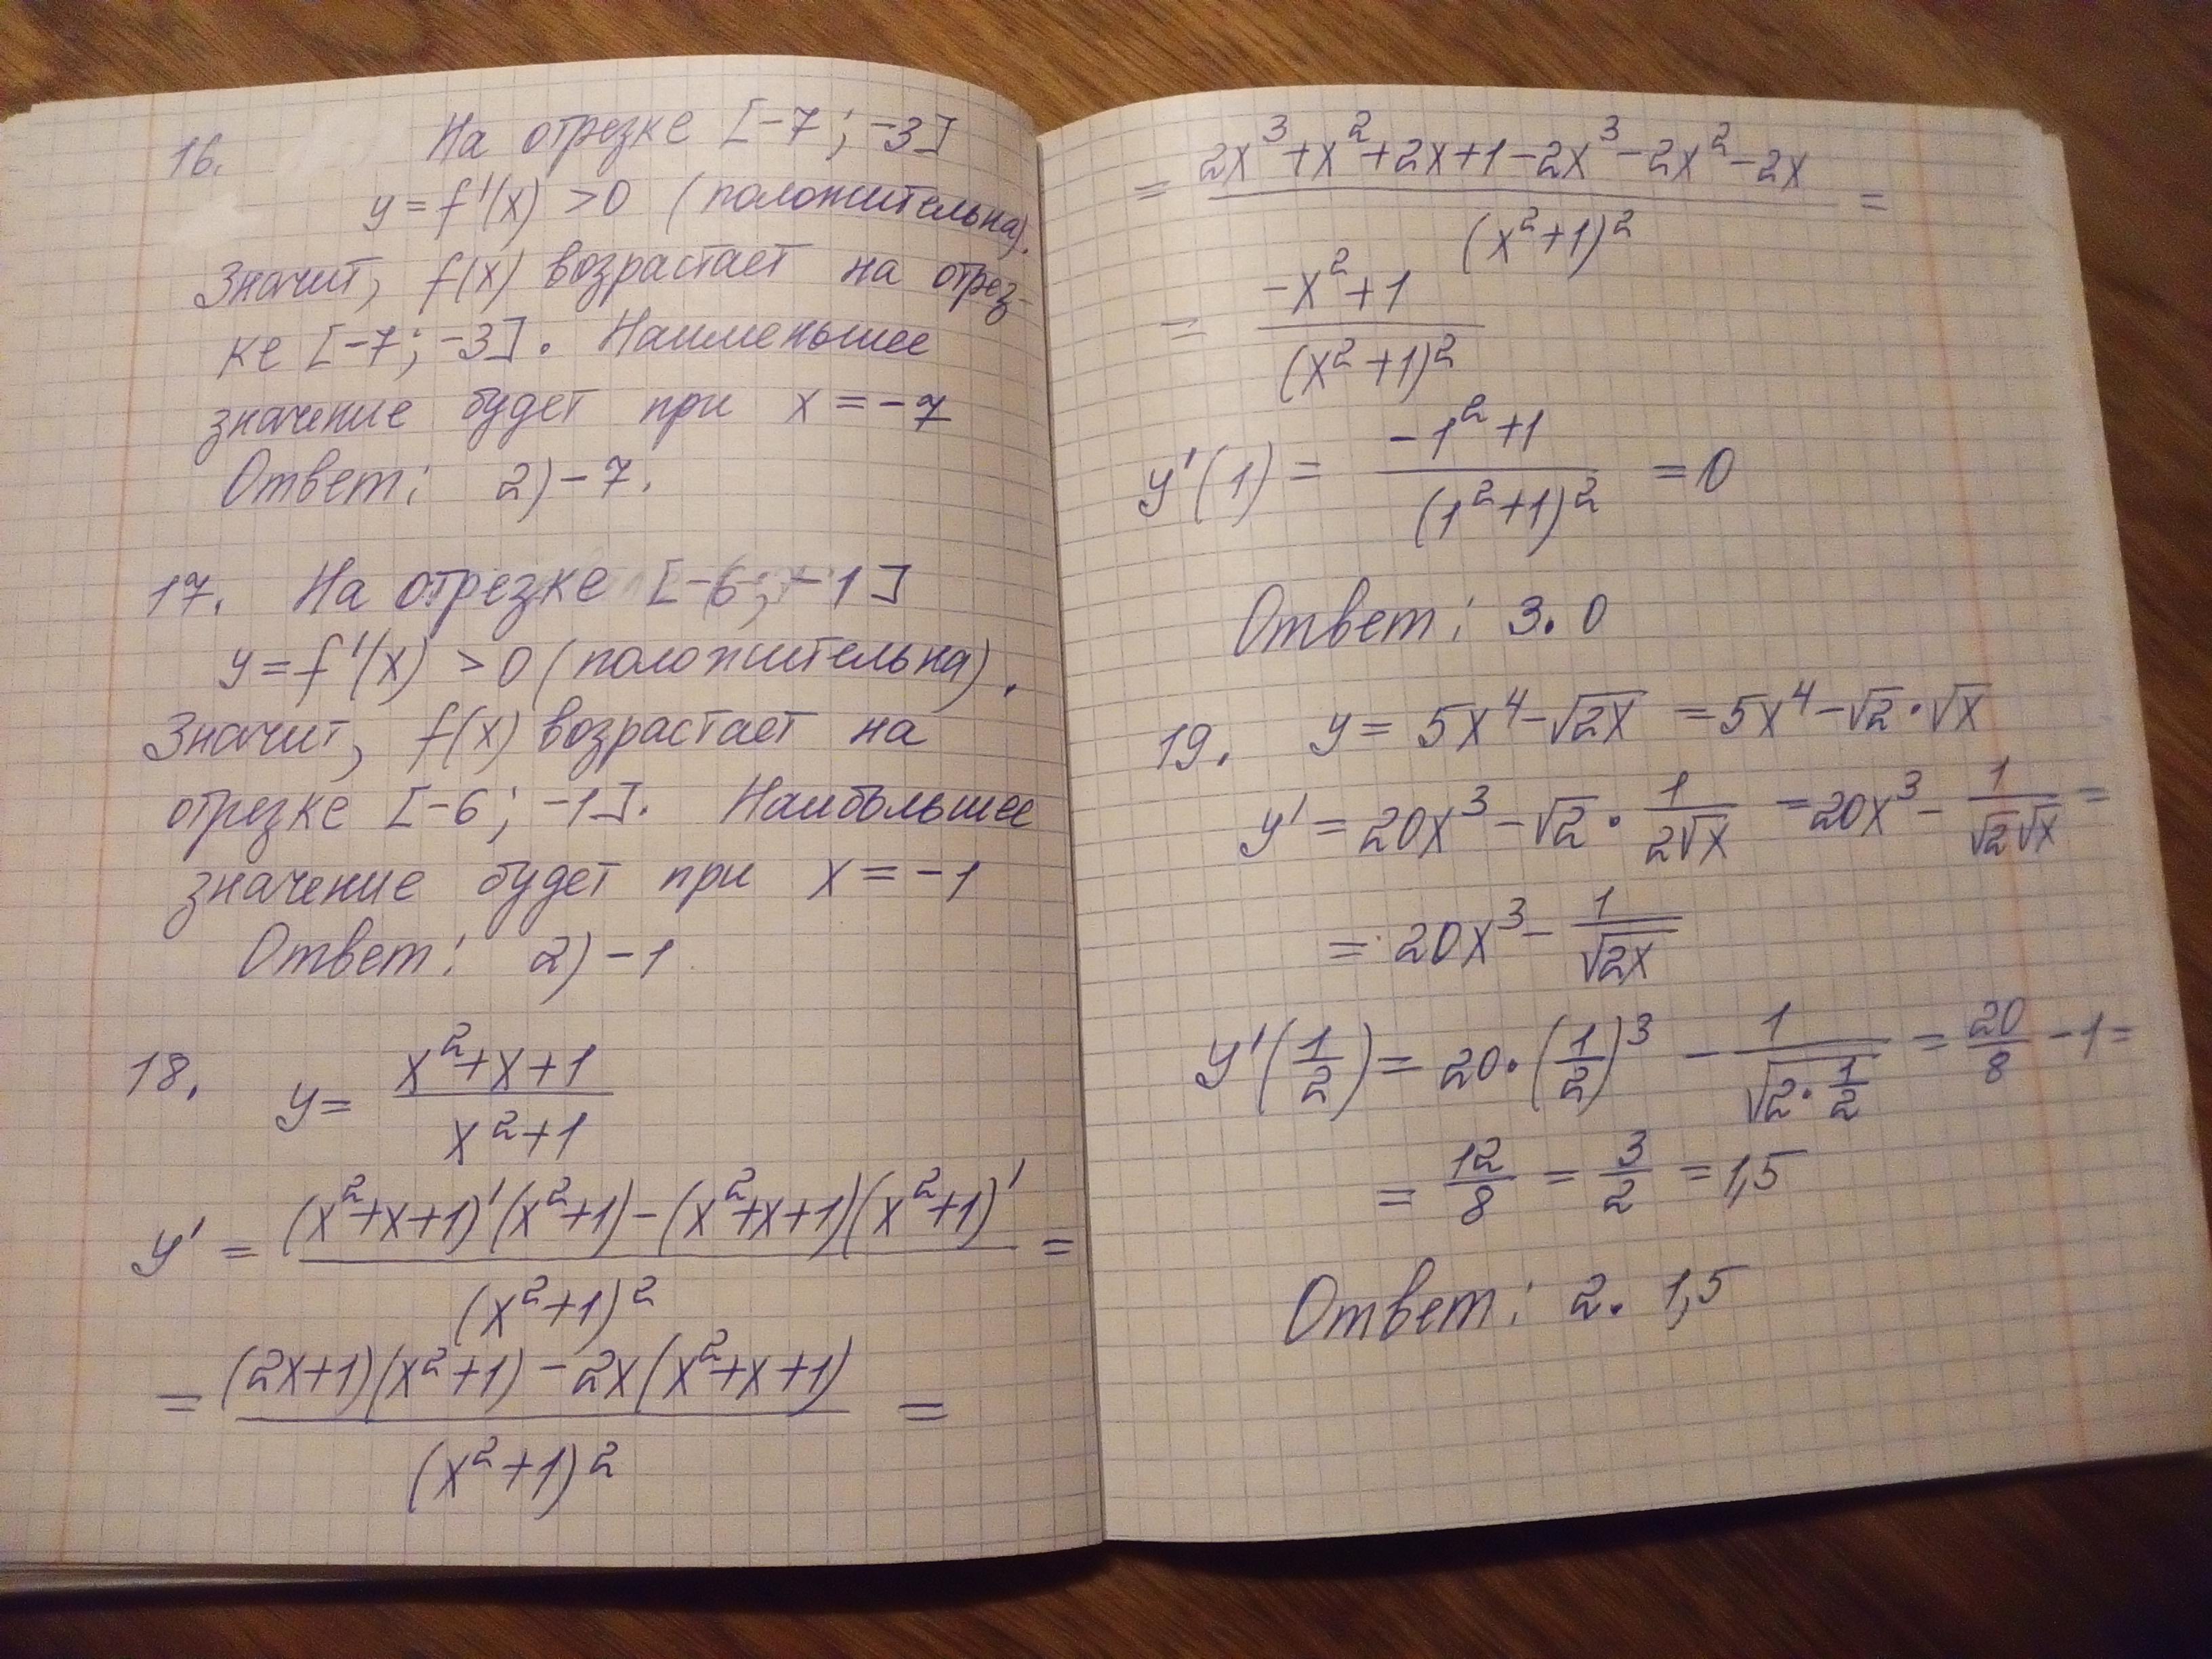 16. На отрезке [-7; -3]
y = f'(x) > 0 (положительна).
Значит, f(x) возрастает на отрез-
ке [-7; -3]. Наименьшее
значение будет при x = -7
Ответ: 2) -7.
17. На отрезке [-6; -1]
y = f'(x) > 0 (положительна).
Значит, f(x) возрастает на
отрезке [-6; -1]. Наибольшее
значение будет при x = -1
Ответ: 2) -1
18. y = (x²+x+1)/(x²+1)
y' = ((x²+x+1)'(x²+1)-(x²+x+1)(x²+1)')/(x²+1)² =
= ((2x+1)(x²+1)-2x(x²+x+1))/(x²+1)² =
= (2x³+x²+2x+1-2x³-2x²-2x)/(x²+1)² =
= (-x²+1)/(x²+1)²
y'(1) = (-1²+1)/(1²+1)² = 0
Ответ: 3. 0
19. y = 5x⁴-√2x = 5x⁴-√2·√x
y' = 20x³-√2·1/(2√x) = 20x³-1/(√2√x) =
= 20x³-1/√2x
y'(1/2) = 20·(1/2)³ - 1/√(2·1/2) = 20/8 - 1 =
= 12/8 = 3/2 = 1,5
Ответ: 2. 1,5